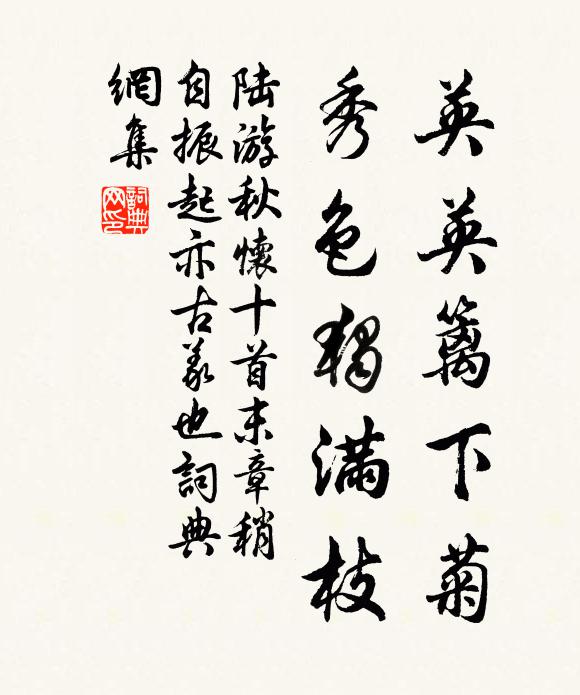 英英籬下菊
秀色独滿枝
陸游秋懷十首末章稍
自振起亦古義也詞典
網集
詞典网印